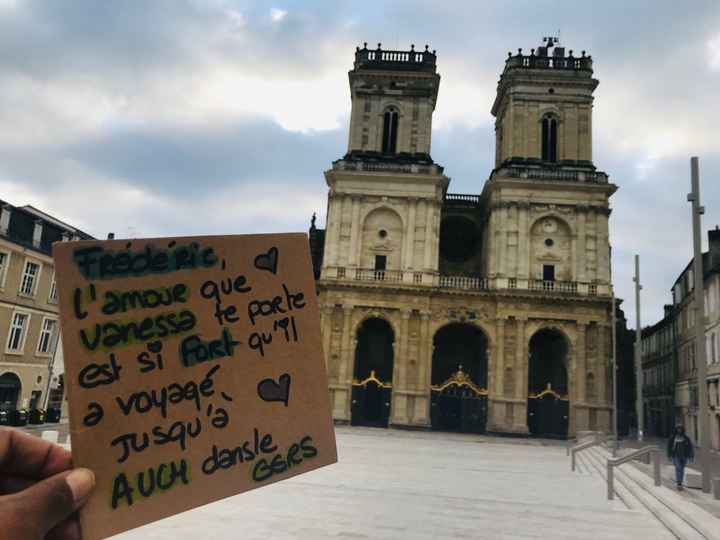 Frédéric,
L'amour que
Vanessa te porte
est si fort qu'il
a voyagé
jusqu'à
AUCH dans le
GERS